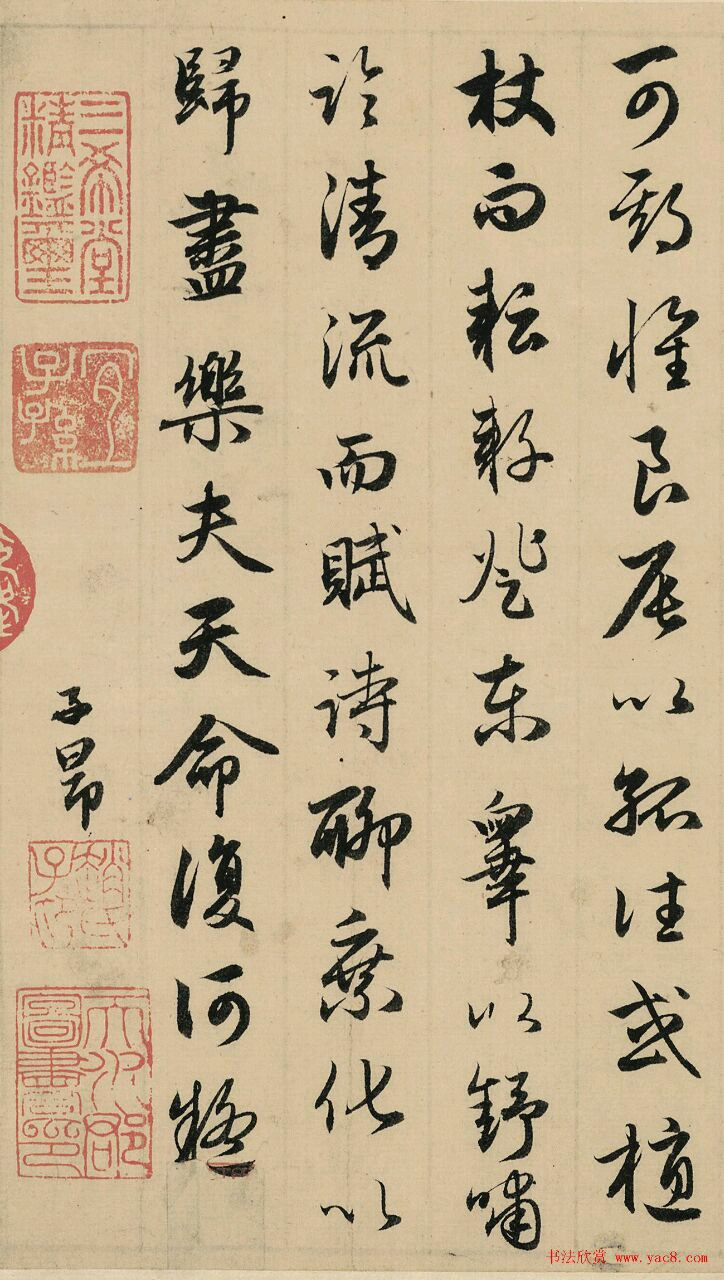 可期懷良辰以孤往或植
杖而耘耔登東皐以舒嘯
臨清流而賦詩聊乘化以
歸盡樂夫天命復何疑
子昂
三希堂精鑑璽
宜子孫
趙氏子昂
天水郡圖書印
书法欣赏 www.yac8.com